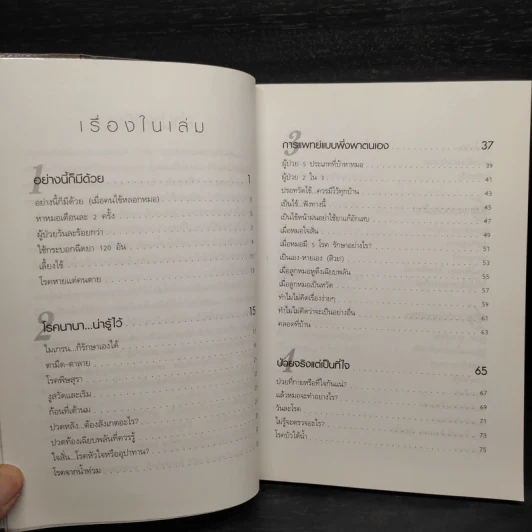 เรื่องในเล่ม
1
อย่างนี้ก็มีด้วย 1
อย่างนี้ก็มีด้วย (เมื่อคนไข้หลอกหมอ)
หาหมอเดือนละ 2 ครั้ง
ผู้ป่วยวันละร้อยกว่า
ใช้กระบอกฉีดยา 120 อัน
เลี้ยงไข้
โรคหายแต่คนตาย
2
โรคนานา...น่ารู้ไว้ 15
ไมเกรน...ก็รักษาเองได้
ตามืด-ตาลาย
โรคพิษสุรา
งูสวัดและเริม
ก้อนที่เต้านม
ปวดหลัง...ต้องสังเกตอะไร?
ปวดท้องเฉียบพลันที่ควรรู้
ใจสั่น...โรคหัวใจหรืออุปาทาน?
โรคจากน้ำท่วม
3
การแพทย์แบบพึ่งพาตนเอง 37
ผู้ป่วย 5 ประเภทที่บ้าหาหมอ 39
ผู้ป่วย 2 ใน 3 41
ปรอทวัดไข้...ควรมีไว้ทุกบ้าน 43
เป็นไข้...ฟังทางนี้ 45
เป็นไข้หน้าฝนอย่าใช้ยาแก้อักเสบ 47
เมื่อหมอใจสั่น 49
เมื่อหมอมี 5 โรค รักษาอย่างไร? 51
เป็นเอง-หายเอง (ด้วย) 53
เมื่อลูกหมอหูตึงเฉียบพลัน 55
เมื่อลูกหมอเป็นหวัด 57
ทำไมไม่คิดเรื่องง่ายๆ 59
ทำไมไม่คิดว่าจะเป็นอย่างอื่น 61
คลอดที่บ้าน 63
4
ป่วยจริงแต่เป็นที่ใจ 65
ป่วยที่กายหรือที่ใจกันแน่? 67
แล้วหมอจะทำอย่างไร? 69
วันละโรค 71
ไม่รู้จะตรวจอะไร? 73
โรคบัวใต้น้ำ 75